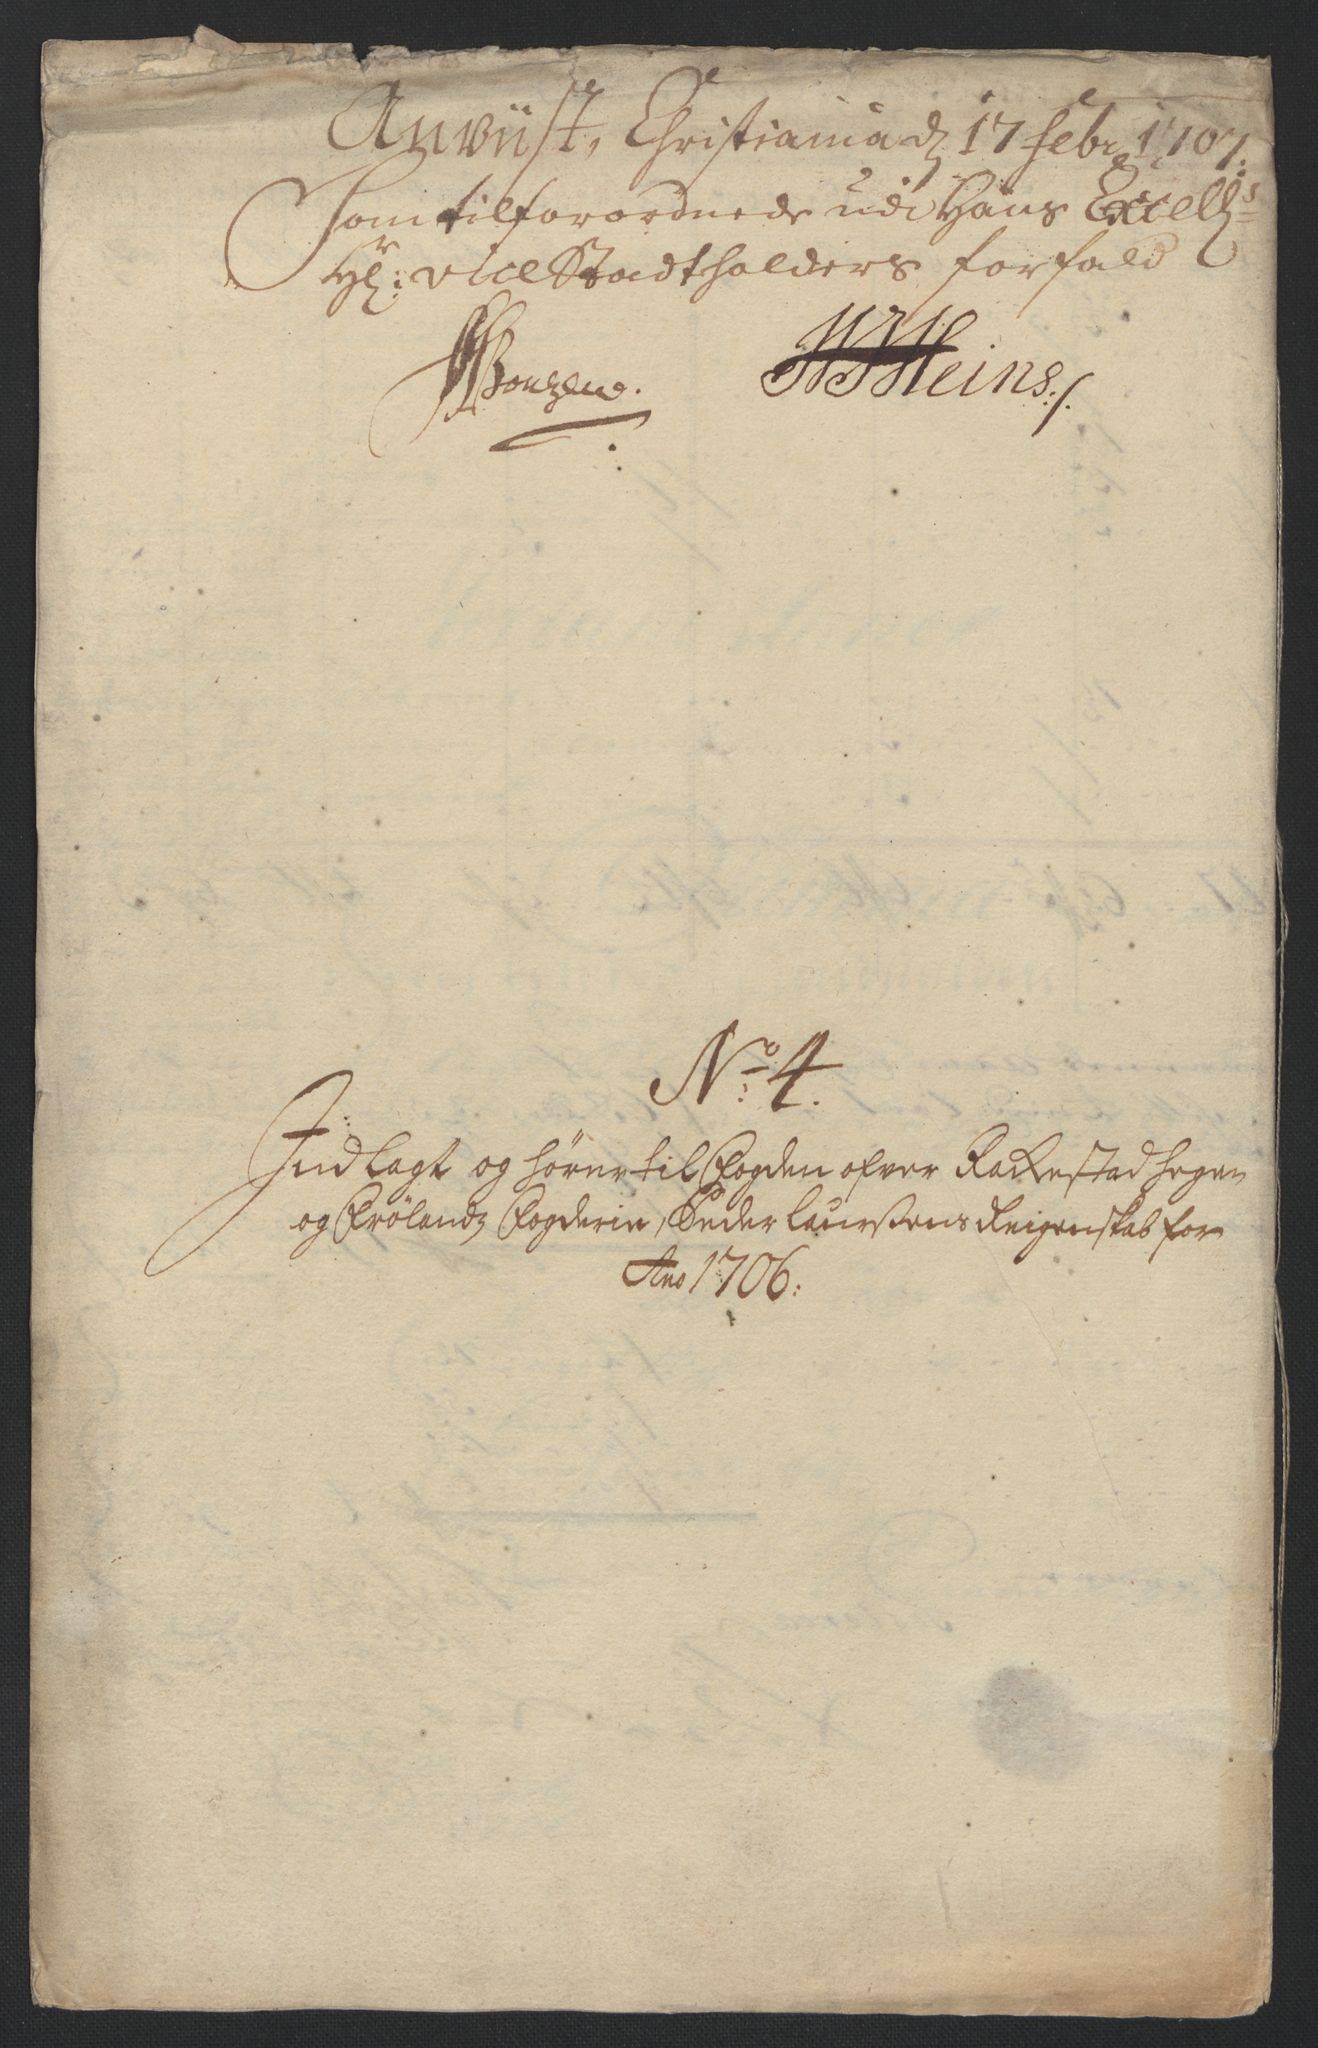 Anvüst, Christiania d 17 febr 1707.
Som tilforordnede udi Hans Excell:s
Hr: vice Stadtholders forfald
WHeins./.
No: 4.
Indlagt og hører til Fogden ofver Rackestad Hegen
og Frølands Fogderie, Peder Laurssens Reigenskab for
Ano 1706: